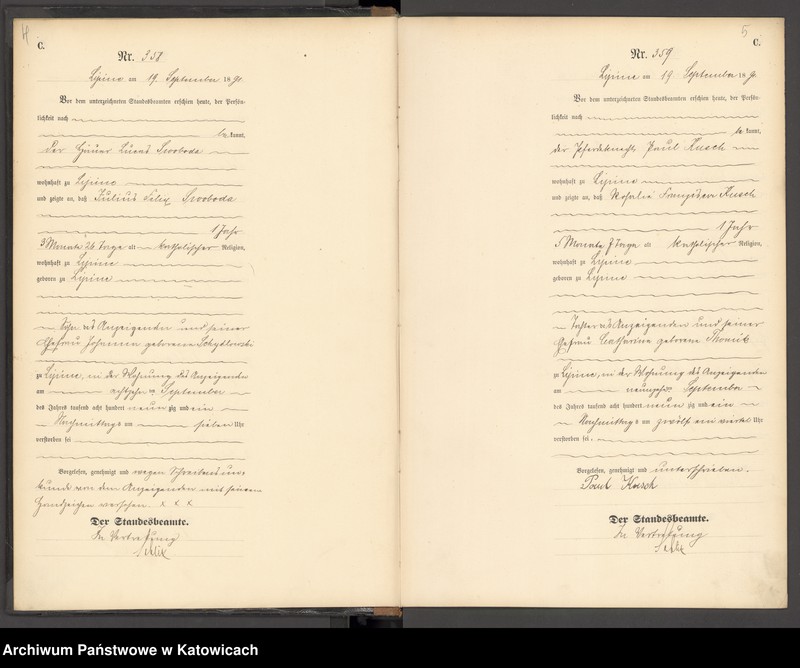 4
C.
Nr. 358
Lipine am 19. September 1891.
Vor dem unterzeichneten Standesbeamten erschien heute, der Persön-
lichkeit nach
be kannt,
Der Häuer Swoboda
wohnhaft zu Lipine
und zeigte an, daß Julius Felix Swoboda
1 Jahr
3 Monate 26 Tage alt katholischer Religion,
wohnhaft zu Lipine
geboren zu Lipine
Sohn des Anzeigenden und seiner
Ehefrau Johanna geborene
zu Lipine, in der Wohnung des Anzeigenden
am achtzehn ten September
des Jahres tausend acht hundert neun zig und ein
Nachmittags um sieben Uhr
verstorben sei
Vorgelesen, genehmigt und wegen Schreibensun-
kunde von dem Anzeigenden mit seinem
Handzeichen versehen. x x x
Der Standesbeamte.
In Vertretung
5
C.
Nr. 359
Lipine am 19 September 1891.
Vor dem unterzeichneten Standesbeamten erschien heute, der Persön-
lichkeit nach
be kannt,
der Pferdeknecht Paul Kusch
wohnhaft zu Lipine
und zeigte an, daß Rosalie Franziska Kusch
1 Jahr
5 Monate 7 Tage alt katholischer Religion,
wohnhaft zu Lipine
geboren zu Lipine
Tochter des Anzeigenden und seiner
Ehefrau Catharina geborene
zu Lipine, in der Wohnung des Anzeigenden
am September
des Jahres tausend acht hundert neun zig und ein
Nachmittags um zwölf ein viertel Uhr
verstorben sei.
Vorgelesen, genehmigt und unterschrieben.
Paul Kusch
Der Standesbeamte.
In Vertretung
Archiwum Państwowe w Katowicach